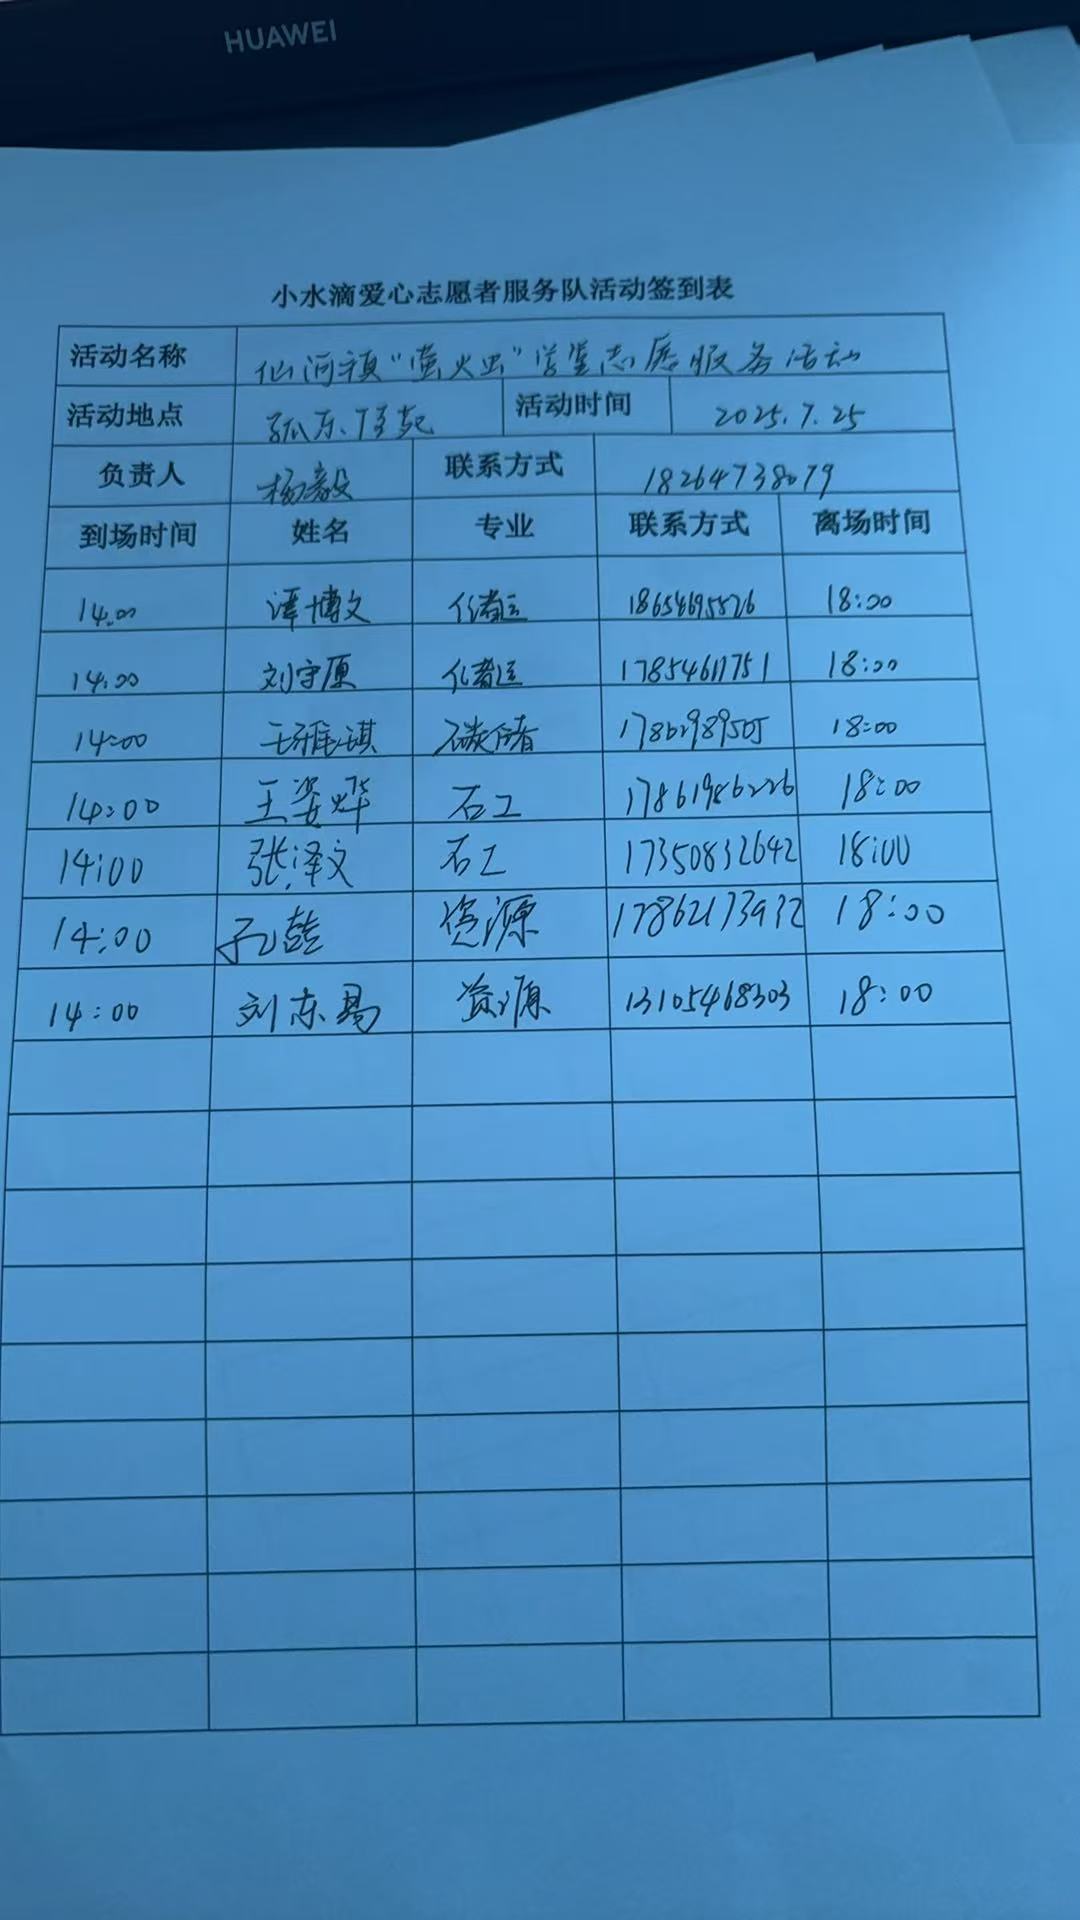 HUAWEI
小水滴爱心志愿者服务队活动签到表
活动名称 仙河镇“萤火虫”学堂志愿服务活动
活动地点 孤东 活动时间 2025.7.25
负责人 杨毅 联系方式 18264738079
到场时间 姓名 专业 联系方式 离场时间
14:00 谭博文 储运 18654695826 18:00
14:00 刘宇原 储运 17854617751 18:00
14:00 王雅琪 碳储 17862989505 18:00
14:00 王姿烨 石工 17861986226 18:00
14:00 张泽文 石工 17350832642 18:00
14:00 孔 资源 17862173932 18:00
14:00 刘东易 资源 13105468303 18:00